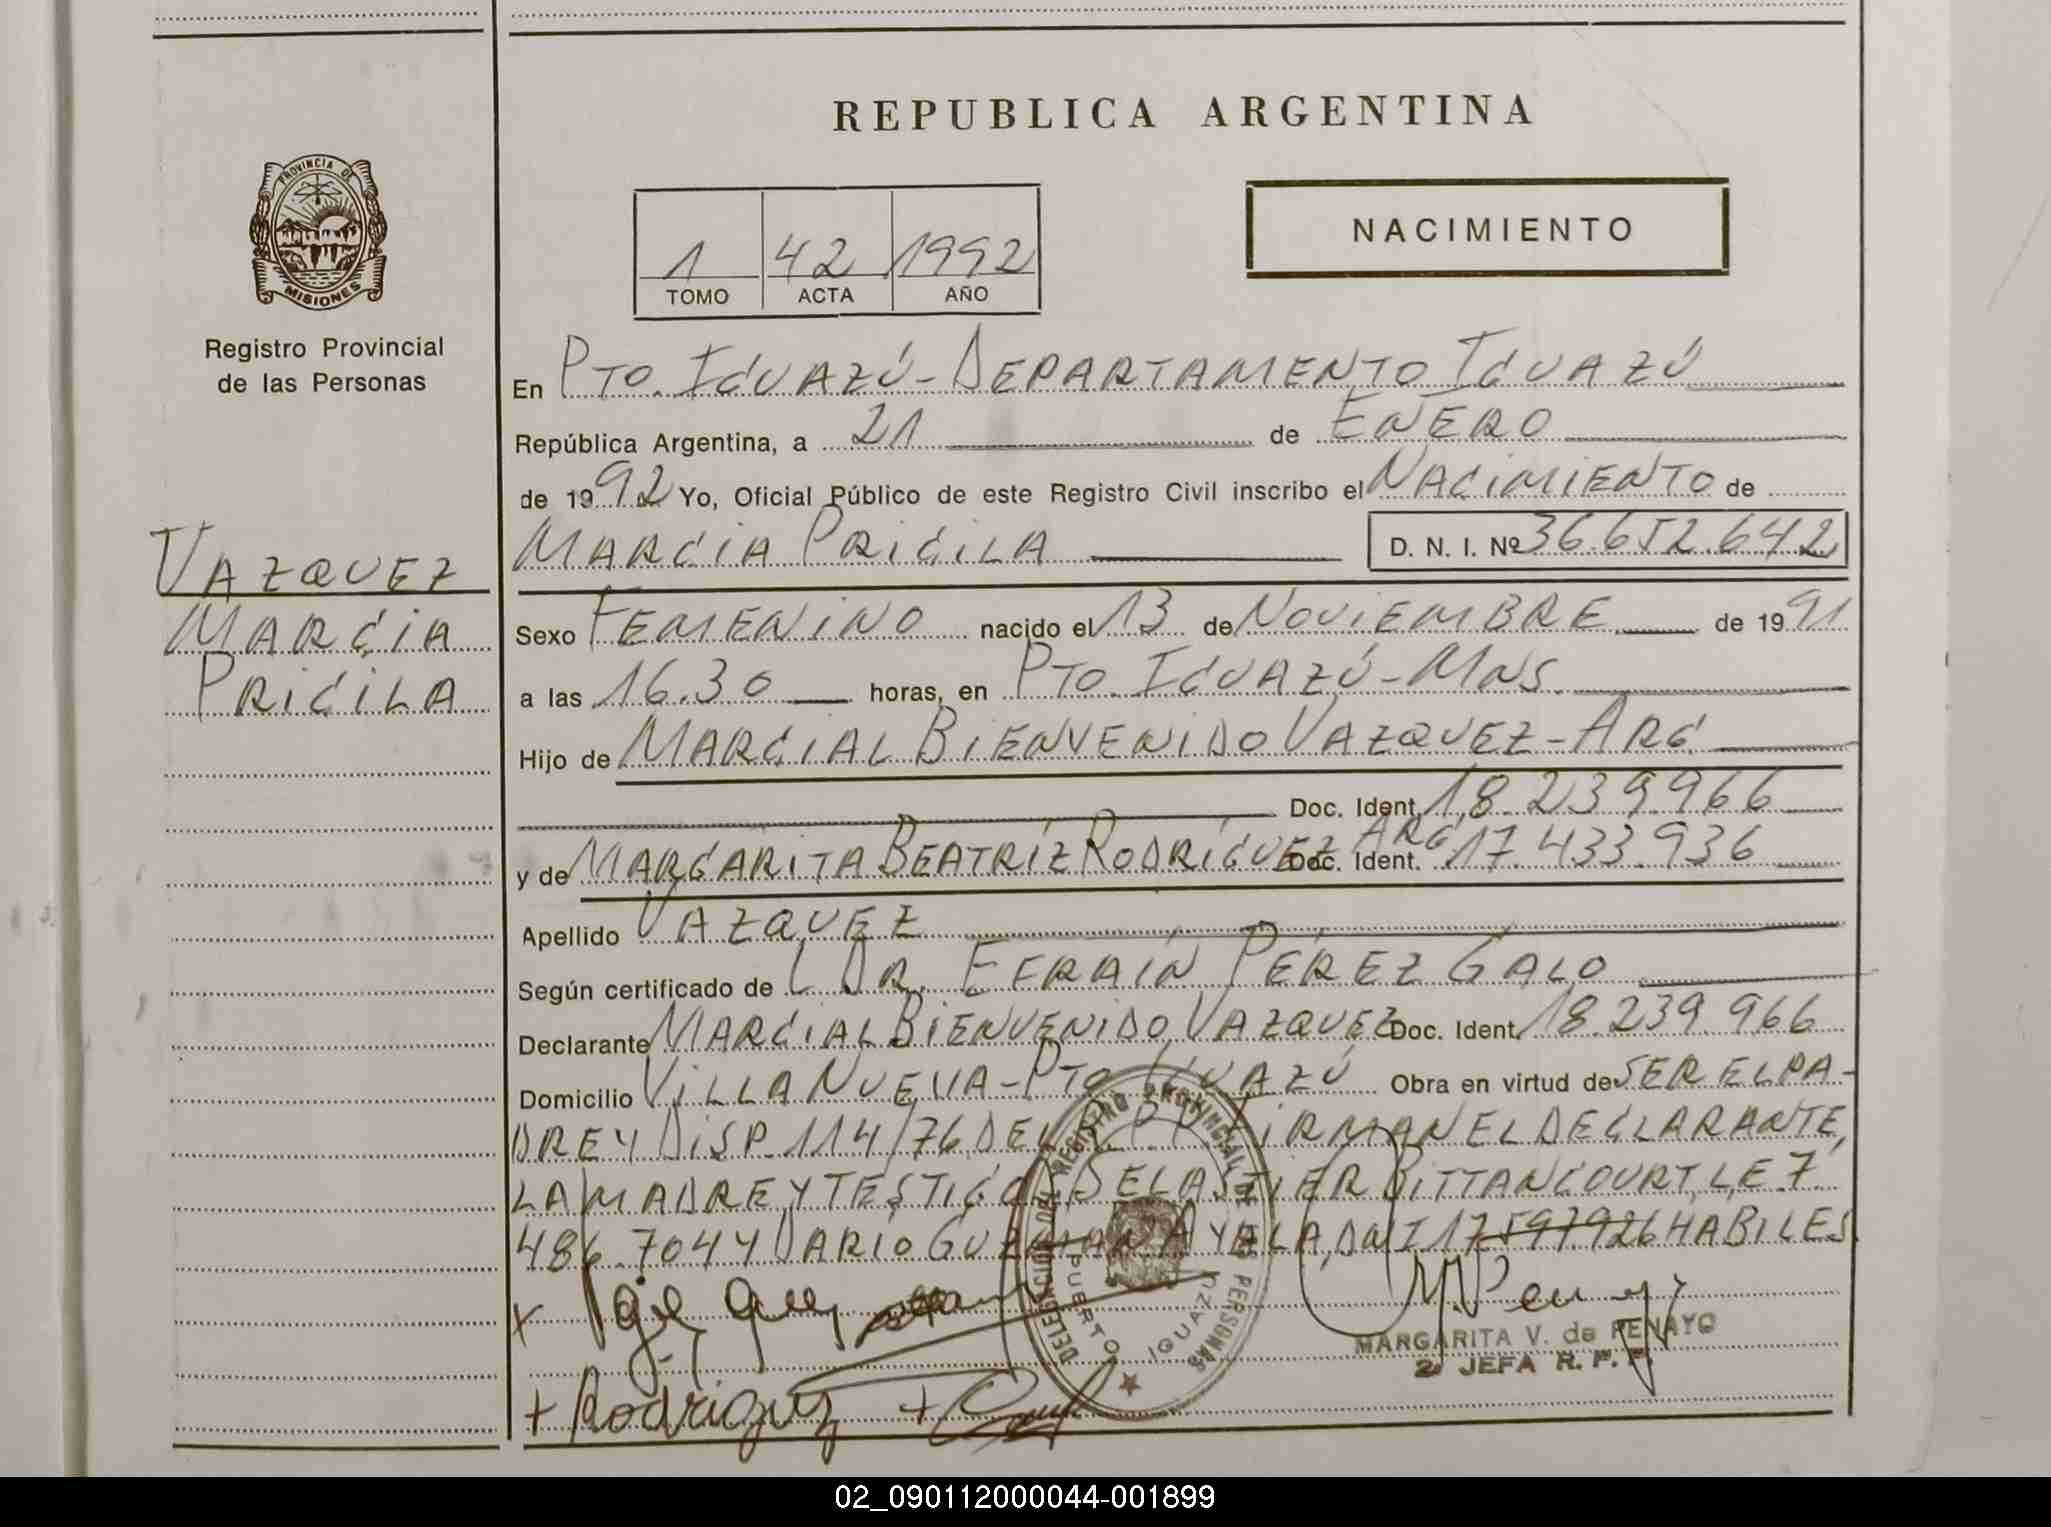 REPUBLICA ARGENTINA
PROVINCIA DE
MISIONES
Registro Provincial
de las Personas
1 42 1992
TOMO ACTA AÑO
NACIMIENTO
VAZQUEZ
MARCIA
PRICILA
En PTO. IGUAZÚ - DEPARTAMENTO IGUAZÚ
República Argentina, a 21 de ENERO
de 1992 Yo, Oficial Público de este Registro Civil inscribo el NACIMIENTO de
MARCIA PRICILA D. N. I. Nº 36.652.642
Sexo FEMENINO nacido el 13 de NOVIEMBRE de 1991
a las 16.30 horas, en PTO. IGUAZÚ - MNS.
Hijo de MARCIAL BIENVENIDO VAZQUEZ - ARG
Doc. Ident. 18.239.966
y de MARGARITA BEATRÍZ RODRÍGUEZ ARG. Doc. Ident. 17.433.936
Apellido VAZQUEZ
Según certificado de L DR. EFRAÍN PÉREZ GALO
Declarante MARCIAL BIENVENIDO VAZQUEZ Doc. Ident. 18.239.966
Domicilio VILLA NUEVA - PTO IGUAZÚ Obra en virtud de SER EL PA-
DRE Y DISP. 114/76 DEL R.P.P. FIRMAN EL DECLARANTE,
LA MADRE Y TESTIGOS DELASTIER BITTANCOURT, L.E. 7.
486.704 Y DARÍO GUZMAN AYALA, DNI 17.597.926 HABILES
DELEGACION DEL REGISTRO PROVINCIAL DE LAS PERSONAS
PUERTO IGUAZU
MARGARITA V. de PENAYO
2ª JEFA R. P. P.
+ Rodriguez +
02_090112000044-001899